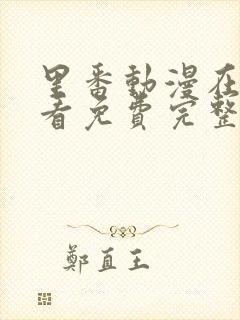 里番動漫在
看免費完整
鄭直王